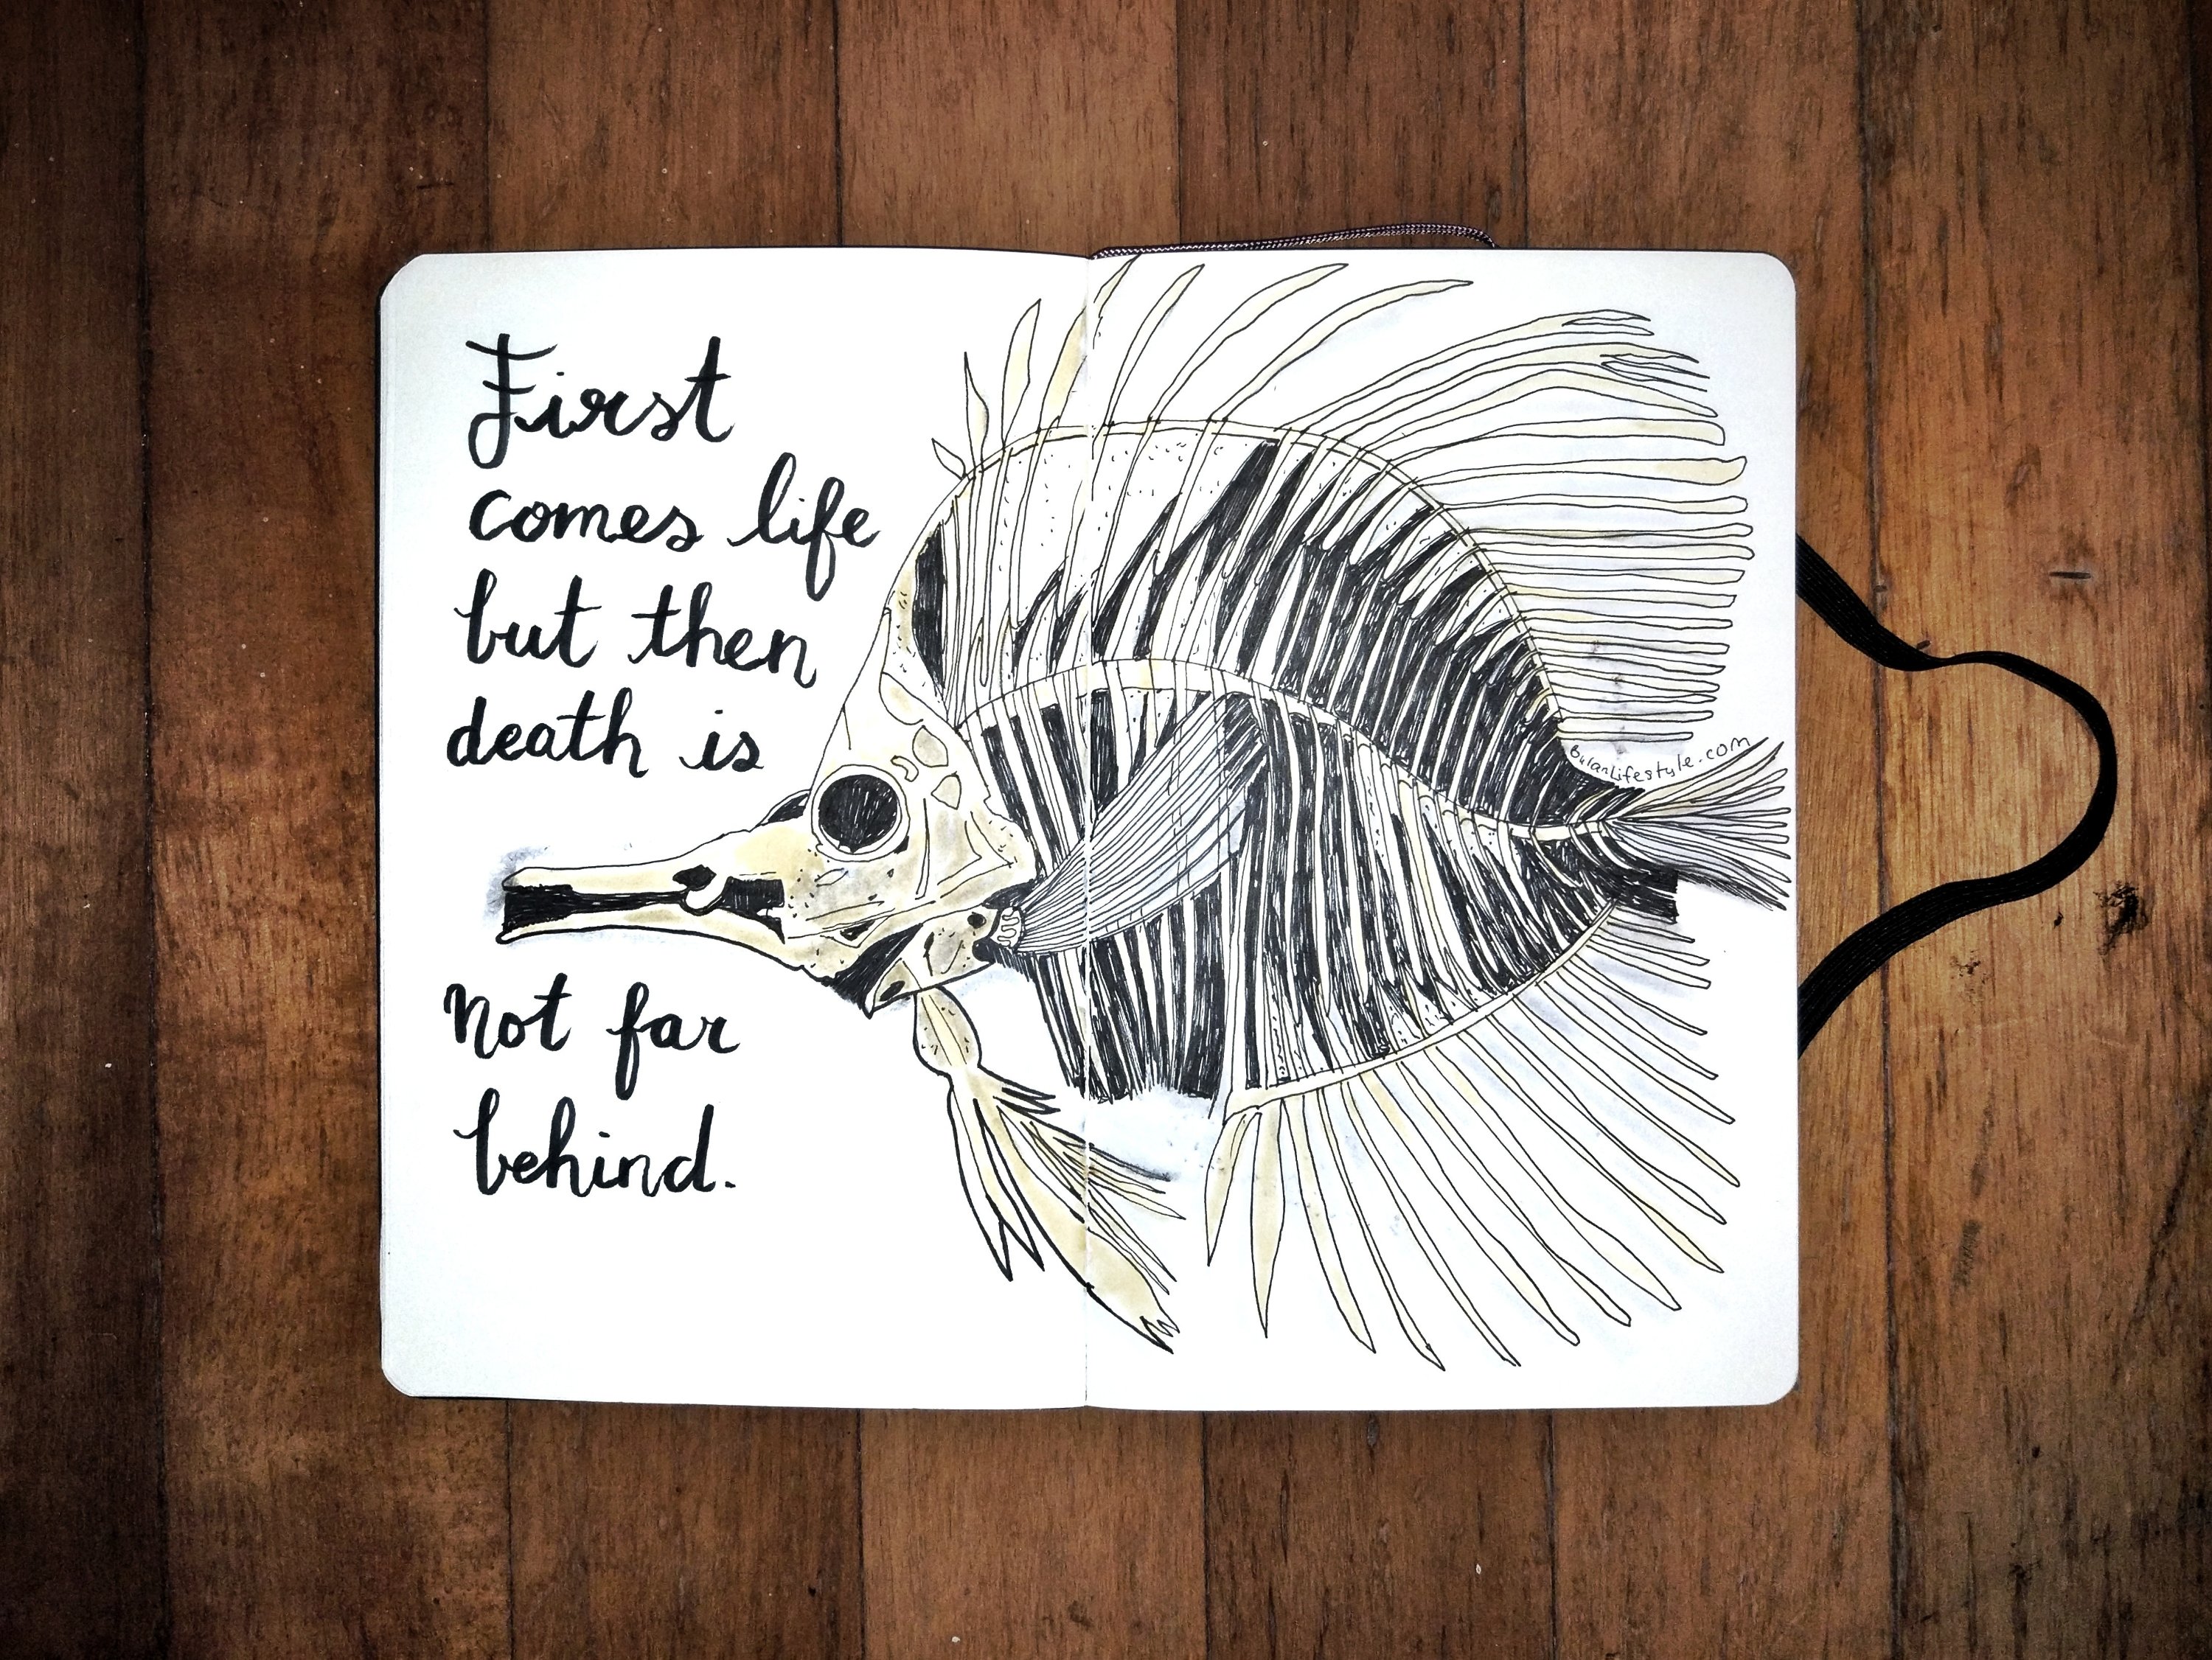 First
comes life
but then
death is
not far
behind.
BulanLifestyle.com